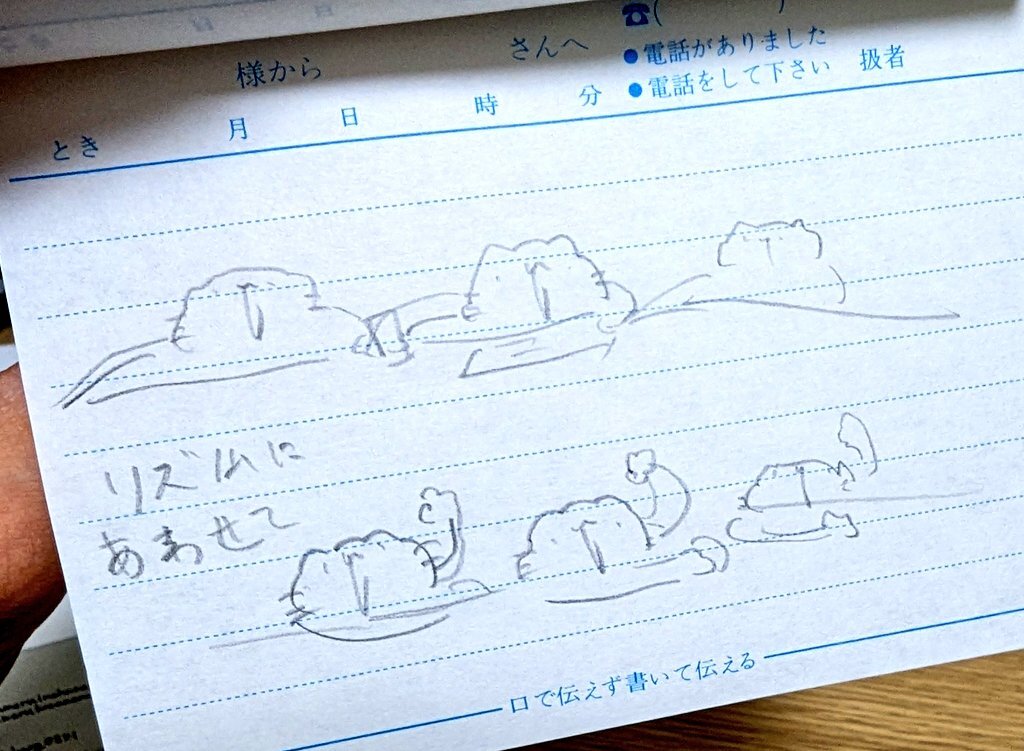 ☎( )
様から さんへ ●電話がありました
とき 月 日 時 分 ●電話をして下さい 扱者
リズムに
あわせて
口で伝えず書いて伝える